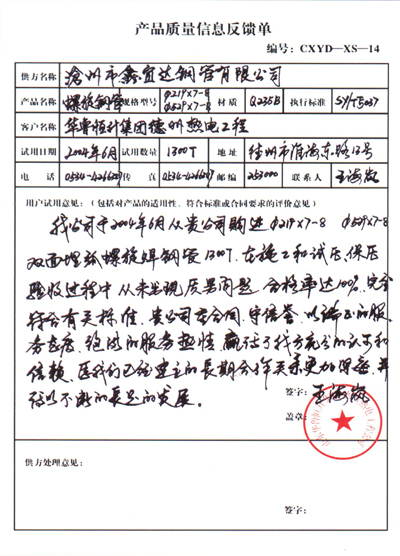 产品质量信息反馈单
编号：CXYD—XS—14
供方名称 沧州市鑫宜达钢管有限公司
产品名称 螺旋钢管 规格型号 φ219×7-8 φ529×7-8 材质 Q235B 执行标准 SY/T5037
客户名称 华鲁恒升集团德州热电工程
试用日期 2004年6月 试用数量 1300T 地址
电话 传真 邮编 253000 联系人 王海岚
用户试用意见：（包括对产品的适用性、符合标准或合同要求的评价意见）
我公司于2004年6月从贵公司购进φ219×7-8 φ529×7-8
双面埋弧螺旋焊钢管1300T，在施工和试压、保压
验收过程中从未出现质量问题，合格率达100%，完全
符合有关标准。贵公司重合同，守信誉，以 的服
务态度， 的服务热情，赢得了我方充分的认可和
信赖，愿我们已经建立的长期合作关系更加深海，并
以不断的 的发展。
签字：王海岚
盖章：
供方处理意见：
签字：